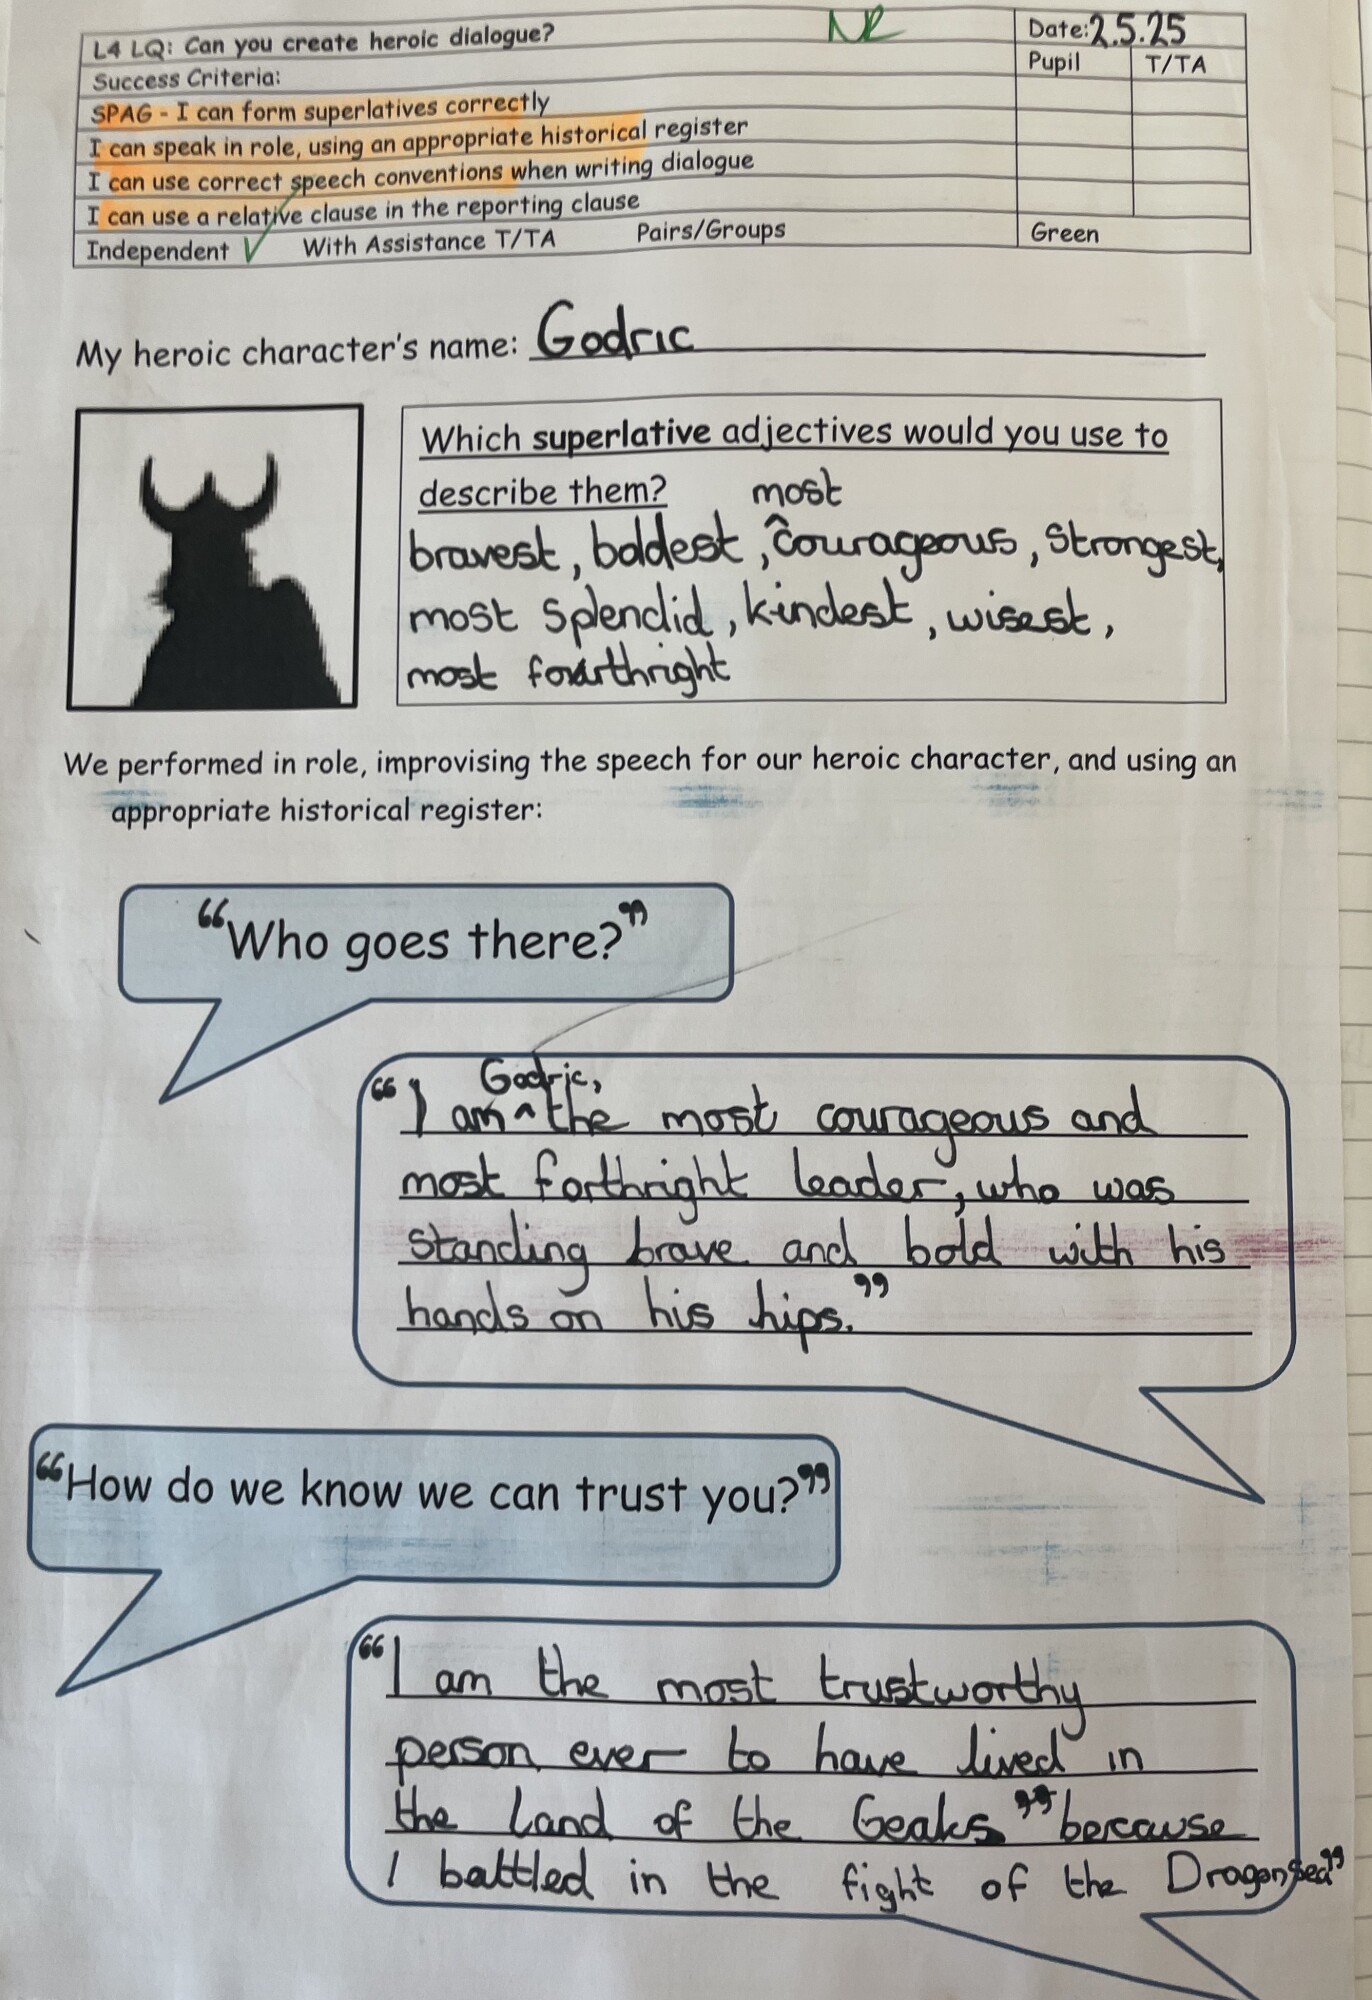 L4 LQ: Can you create heroic dialogue?
NR
Date: 2.5.25
Success Criteria:
Pupil
T/TA
SPAG - I can form superlatives correctly
I can speak in role, using an appropriate historical register
I can use correct speech conventions when writing dialogue
I can use a relative clause in the reporting clause
Independent ✓ With Assistance T/TA Pairs/Groups
Green
My heroic character's name: Godric
Which superlative adjectives would you use to
describe them?
most
bravest, boldest, ^courageous, strongest,
most splendid, kindest, wisest,
most forthright
We performed in role, improvising the speech for our heroic character, and using an
appropriate historical register:
“Who goes there?”
Godric,
“I am ^ the most courageous and
most forthright leader, who was
standing brave and bold with his
hands on his hips.”
“How do we know we can trust you?”
“I am the most trustworthy
person ever to have lived in
the land of the Geaks ” because
I battled in the fight of the